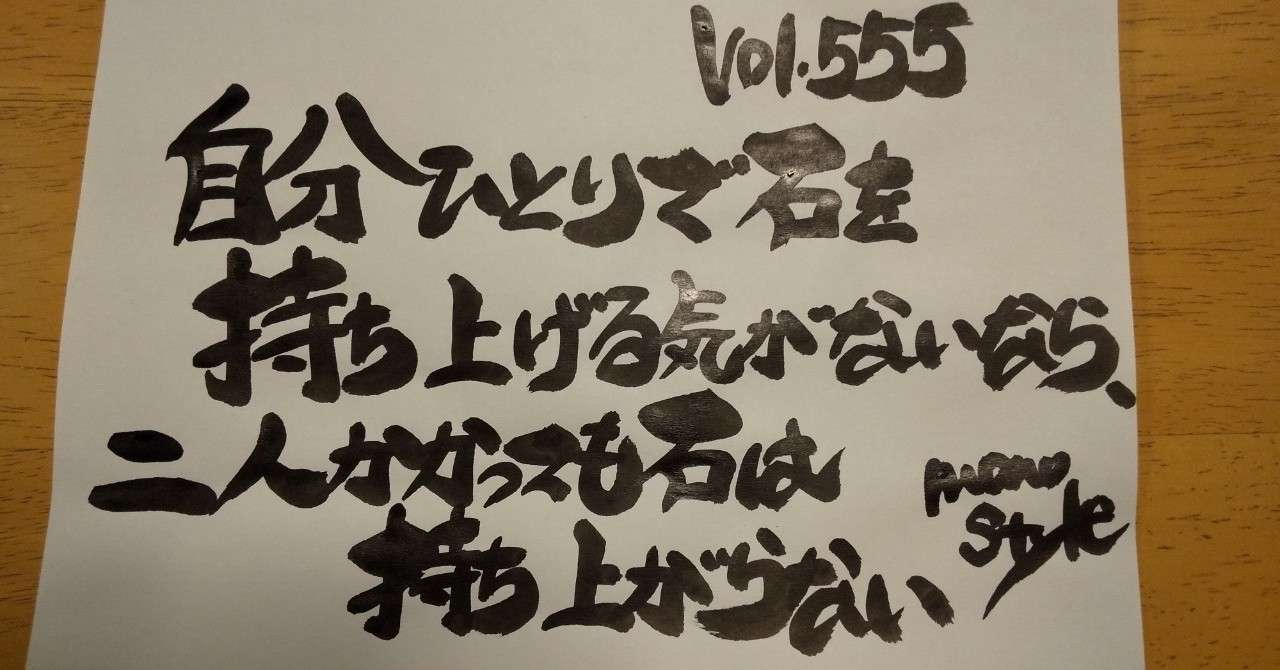 Vol.555
自分ひとりで石を
持ち上げる気がないなら、
二人かかっても石は
持ち上がらない
mano
style